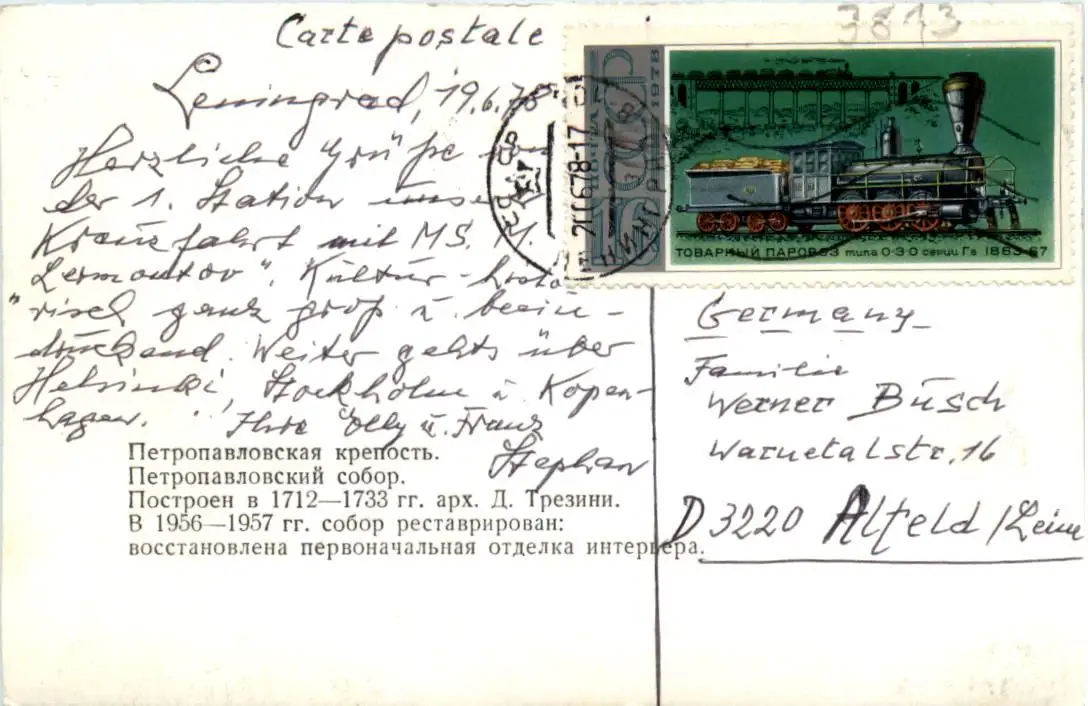 3813
Carte postale
Leningrad, 19.6.78
Herzliche Grüße von
der 1. Station unserer
Kreuzfahrt mit MS. "M.
Lermontov". Kultur-histo-
risch ganz groß u. beein-
druckend. Weiter gehts über
Helsinki, Stockholm u. Kopen-
hagen. Ihre Elly u. Franz
Stephan
Петропавловская крепость.
Петропавловский собор.
Построен в 1712—1733 гг. арх. Д. Трезини.
В 1956—1957 гг. собор реставрирован:
восстановлена первоначальная отделка интерьера.
ПОЧТА СССР 1978
16
ТОВАРНЫЙ ПАРОВОЗ типа 0-3-0 серии Гв 1863-67
СССР
Germany
Familie
Werner Busch
Warnetalstr. 16
D 3220 Alfeld/Leine